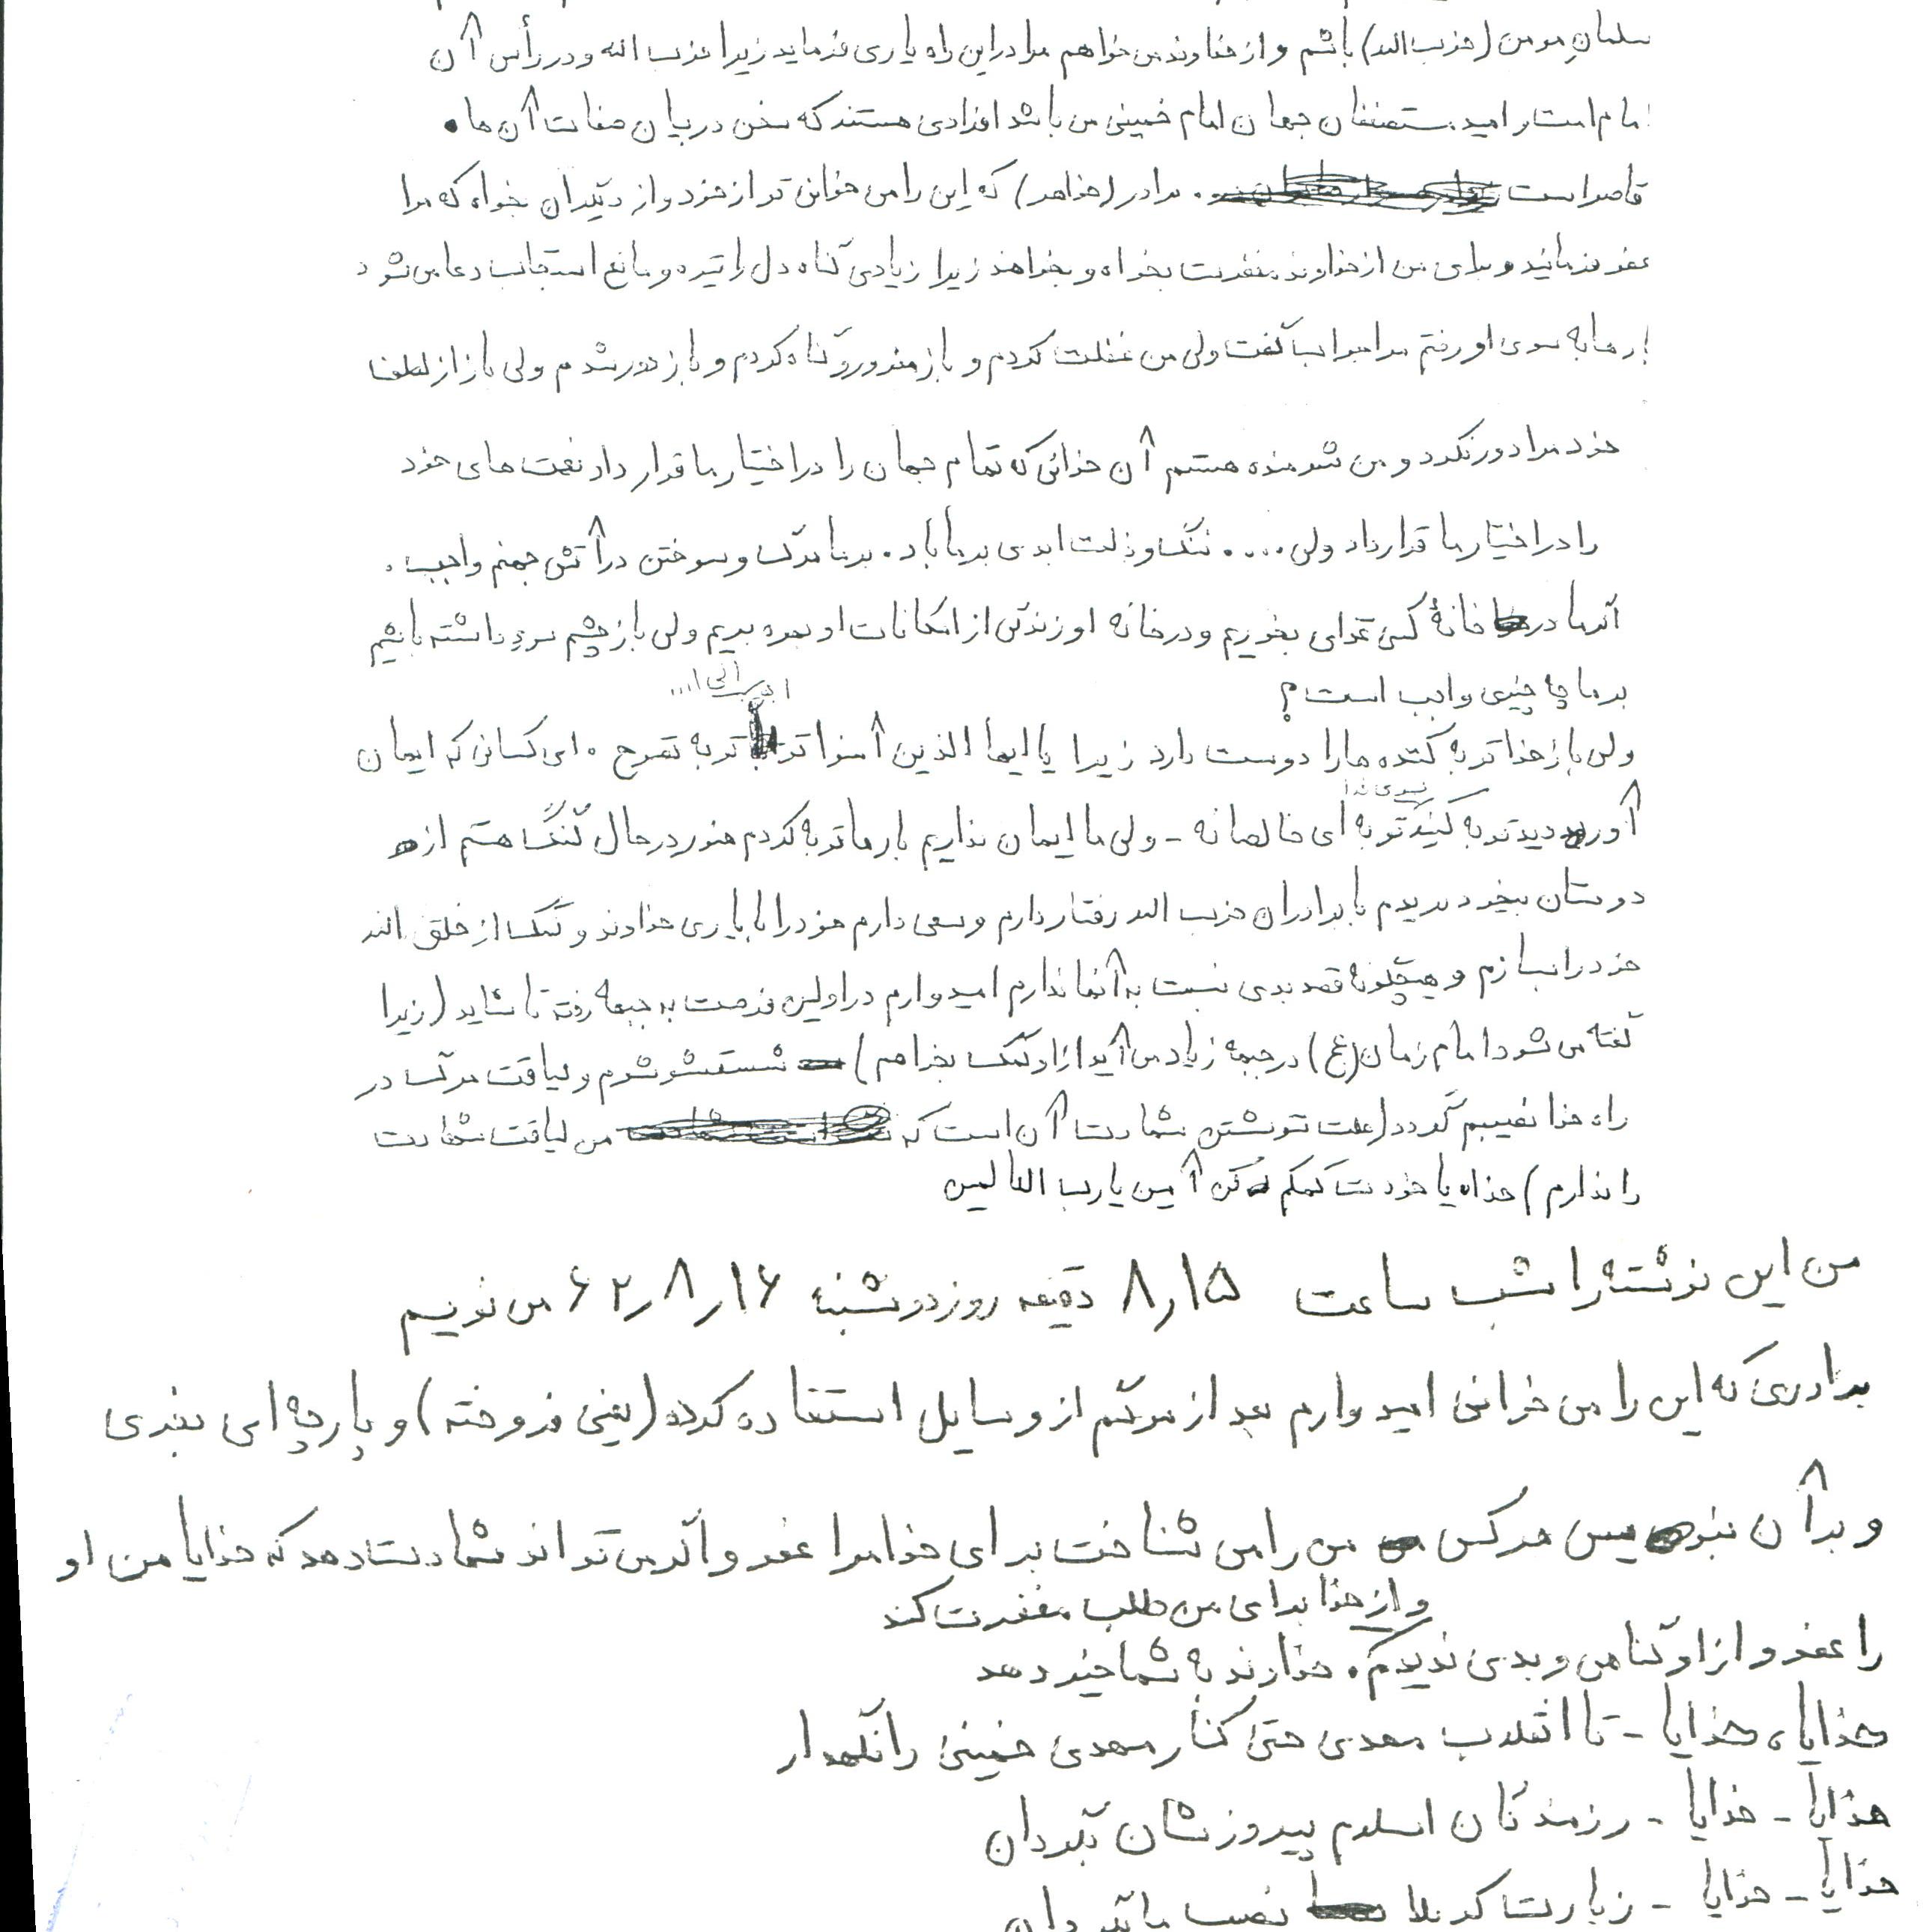 مسلمانِ مومن (حزب الله) باشم و از خداوند می خواهم مرا در این راه یاری فرماید زیرا حزب الله و در رأس آن
امام است و امید مستضعفان جهان امام خمینی می باشد افرادی هستند که سخن در بیان صفات آن ها
قاصر است . برادر (خواهر) که این را می خوانی تو از خود و از دیگران بخواه که مرا
عفو فرمائید و برای من از خداوند مغفرت بخواه و بخواهند زیرا زیادی گناه دل را تیره و مانع استجابت دعا می شود
بارها به سوی او رفتم مرا جواب گفت ولی من غفلت کردم و باز مغرور و گناه کردم و باز دور شدم ولی باز از لطف
خود مرا دور نکرد و من شرمنده هستم آن خدائی که تمام جهان را در اختیار ما قرار داد نعمت های خود
را در اختیار ما قرار داد ولی .... ننگ و ذلت ابدی بر ما باد. بر ما مرگ و سوختن در آتش جهنم واجب .
اگر ما در خانهٔ کسی غذای بخوریم و در خانه او زندگی از امکانات او بهره بریم ولی باز چشم سوء داشته باشیم
بر ما چه چیزی واجب است؟
ولی باز خدا توبه کننده ها را دوست دارد زیرا یا ایها الذین آمنوا توبه نصوح . ای کسانی که ایمان
آوردید توبه کنید بسوی خدا توبه ای خالصانه - ولی ما ایمان نداریم بارها توبه کردم هنوز در حال هستم از
دوستان بریدم با برادران حزب الله رفتار دارم و سعی دارم خود را با یاری خداوند و کمک از خلق الله
خود را بسازم و هیچگونه قصد بدی نسبت به آنها ندارم امیدوارم در اولین فرصت به جبهه رفته تا شاید (زیرا
گفته می شود امام زمان (عج) در جبهه زیاد می آید از او کمک بخواهم) شستشو شوم و لیاقت مرگ در
راه خدا نصیبم گردد (علت ننوشتن شهادت آن است که من لیاقت شهادت
را ندارم) خدایا خودت کمکم کن آمین یا رب العالمین
من این نوشته را شب ساعت ۸٫۱۵ دقیقه روز دوشنبه ۶۲٫۸٫۱۶ می نویسم
برادری که این را می خوانی امیدوارم بعد از مرگم از وسایل استفاده کرده (یعنی فروخته) و پارچه ای بخری
و بر آن بنویس هر کس من را می شناخت برای خدا مرا عفو و اگر می تواند شهادت دهد که خدایا من او
و از خدا برای من طلب مغفرت کند
را عفو و از او گناهی و بدی ندیدم. خداوند به شما خیر دهد
خدایا، خدایا - تا انقلاب مهدی حتی کنار مهدی خمینی را نگهدار
خدایا - خدایا - رزمندگان اسلام پیروزشان بگردان
خدایا - خدایا - زیارت کربلا نصیب ما بگردان